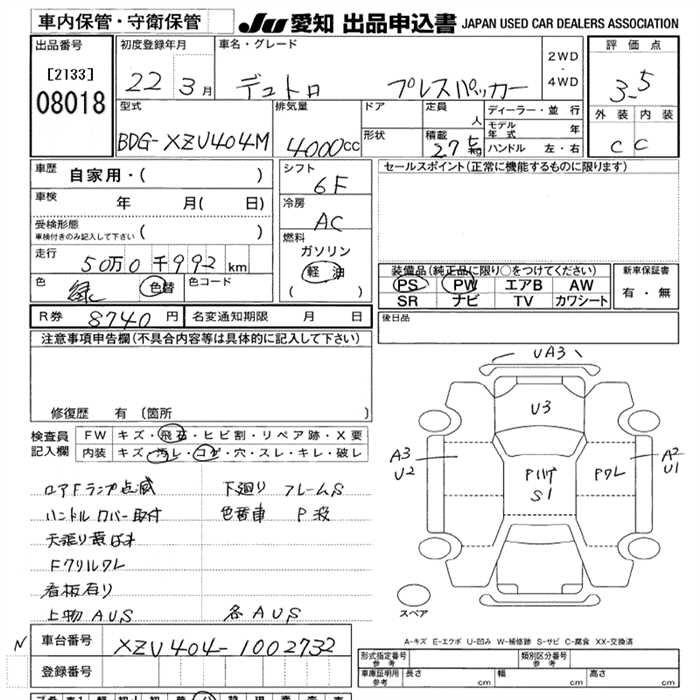 車内保管・守衛保管
JU 愛知 出品申込書 JAPAN USED CAR DEALERS ASSOCIATION
出品番号
[2133]
08018
初度登録年月
22年3月
車名・グレード
デュトロ プレスパッカー
2WD
・
4WD
評価点
3.5
外装 内装
C C
型式
BDG-XZU404M
排気量
4000cc
ドア
形状
定員
人
積載
ディーラー・並行
モデル年式 年
ハンドル 左・右
車歴
自家用・( )
車検
年 月( 日)
受検形態
車検付きのみ記入して下さい
( )
走行
50万0千992km
色
緑
色替
色コード
シフト
6F
冷房
AC
燃料
ガソリン
軽油
( )
セールスポイント(正常に機能するものに限ります)
装備品(純正品に限り○をつけてください)
PS PW エアB AW
SR ナビ TV カワシート
新車保証書
有・無
R券 8740円
名変通知期限 月 日
後日品
注意事項申告欄(不具合内容等は具体的に記入して下さい)
修復歴 有(箇所 )
検査員
記入欄
FW キズ・飛石・ヒビ割・リペア跡・X要
内装 キズ・汚レ・コゲ・穴・スレ・キレ・破レ
下廻り フレームS
ハンドルカバー取付
色番車
看板有り
上物AUS 各AUS
UA3
U3
A3
U2
S1
A2
U1
スペア
A-キズ E-エクボ U-凹み W-補修跡 S-サビ C-腐食 XX-交換済
N
車台番号 XZU404-1002732
登録番号
形式指定番号
参考
類別区分番号
参考
車庫証明用
参考
長さ cm 幅 cm 高さ cm